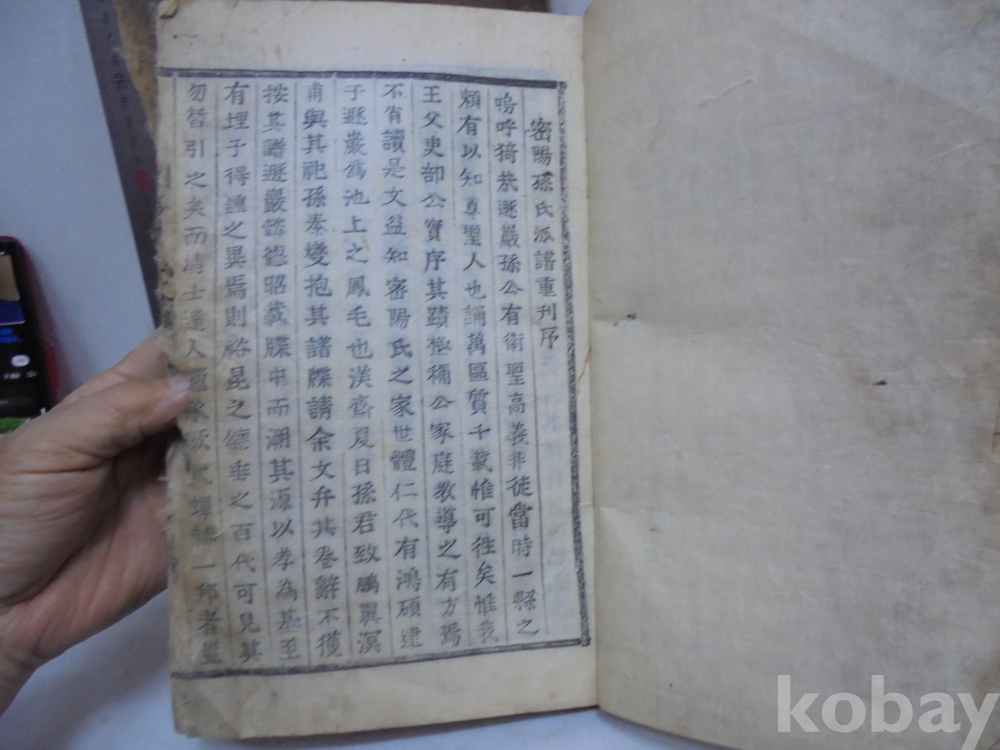 密陽孫氏派譜重刊序
嗚呼猗歟遯巖孫公有衛聖高義非徒當時一縣之
頼有以知尊聖人也誦萬區質千載惟可徃矣惟我
王父吏部公實序其蹟極稱公家庭教導之有方焉
不肖讀是文益知密陽氏之家世體仁代有鴻碩逮
于遯巖為池上之鳳毛也漢齋夏日孫君致鵬翼溟
甫與其祀孫秦燮抱其譜牒請余文弁其卷辭不獲
按其譜遯巖懿德昭載牒中而溯其源以孝為基至
有埋子得鐘之異焉則裕昆之德垂之百代可見其
勿替引之矣而清士達人 一邦者
kobay